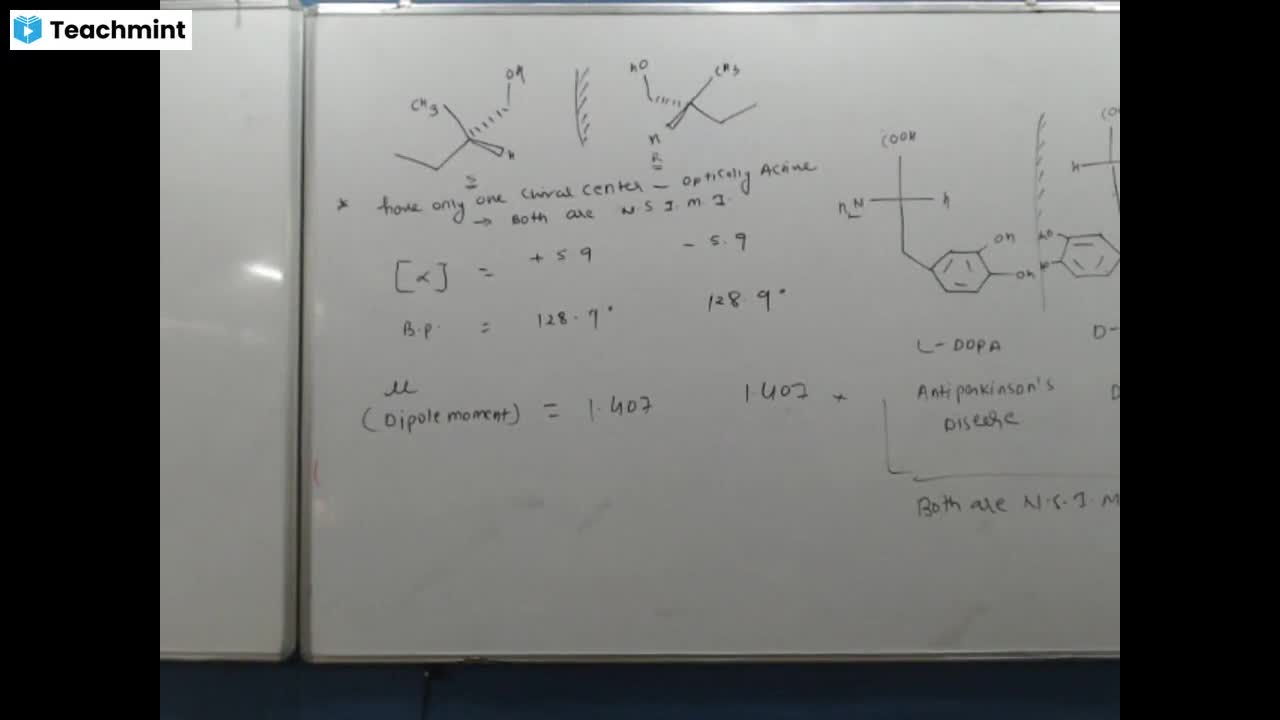 Teachmint
OH
CH3
H
S
HO
CH3
H
R
* have only one chiral center - optically Active
→ Both are N.S.I.M.I.
[α] = +5.9 -5.9
B.P. = 128.9° 128.9°
μ
(Dipole moment) = 1.407 1.407 *
COOH
H2N H
OH
OH
L-DOPA
Antiparkinson's
Disease
Both are N.S.I.M
CO
H
HO
HO
D-
D